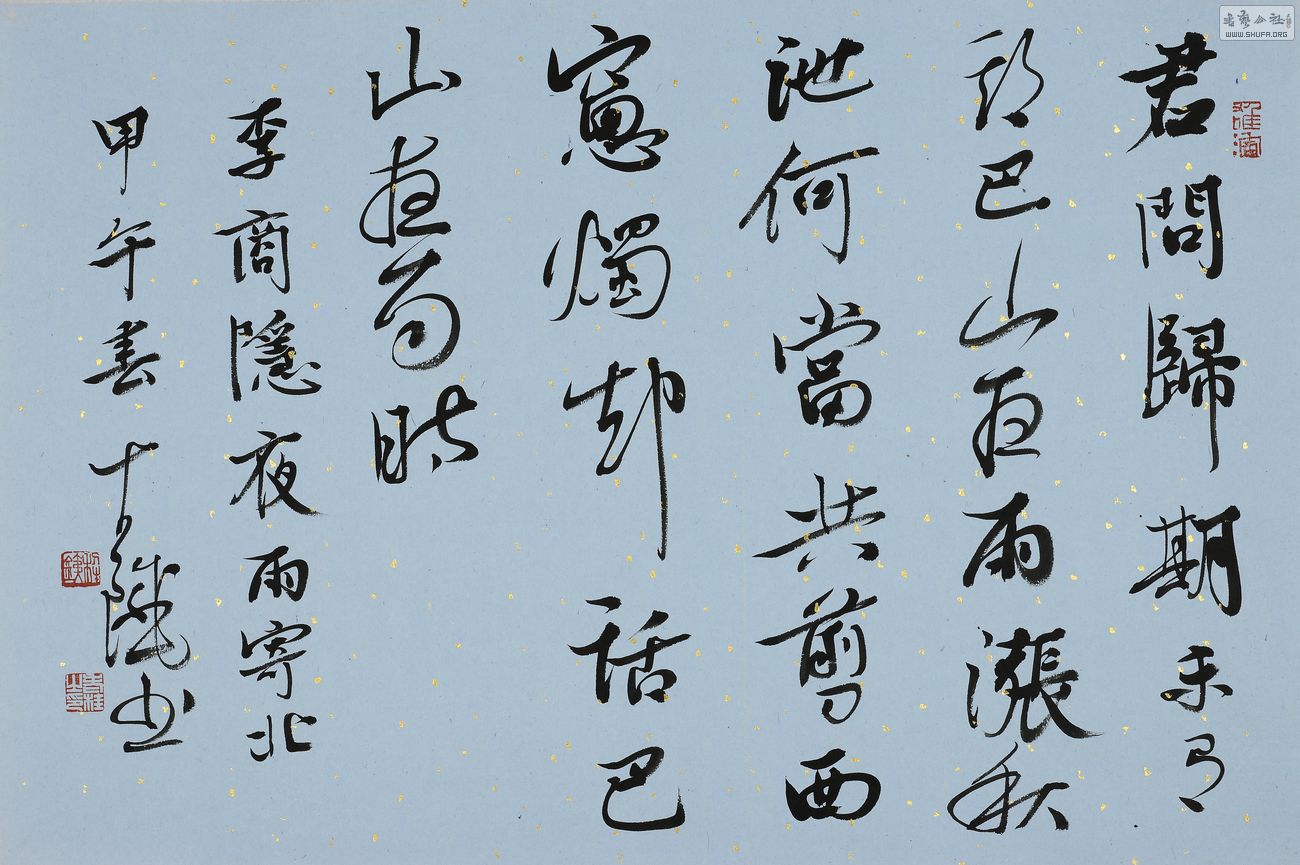 君問歸期未有
期巴山夜雨漲秋
池何當共剪西
窻燭却話巴
山夜雨時
李商隱夜雨寄北
甲午春书
書藝公社
WWW.SHUFA.ORG